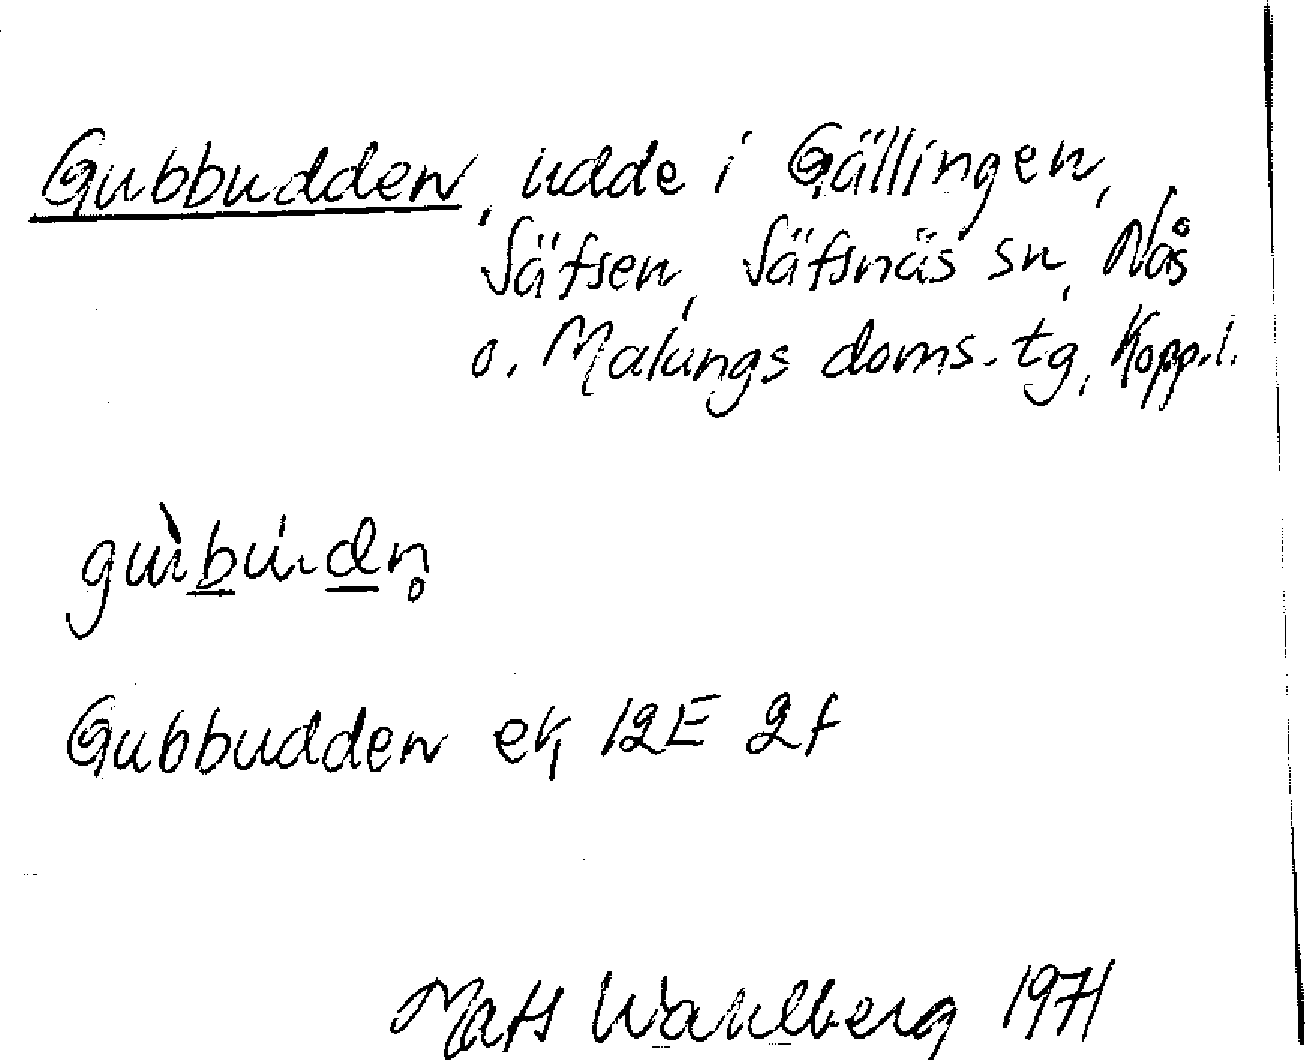 Gubbudden, udde i Gällingen,
Säfsen, Säfsnäs sn, Nås
o. Malungs doms. tg, Kopp.l.
gùbudn̥
Gubbudden ek 12E 2f
Mats Wahlberg 1971